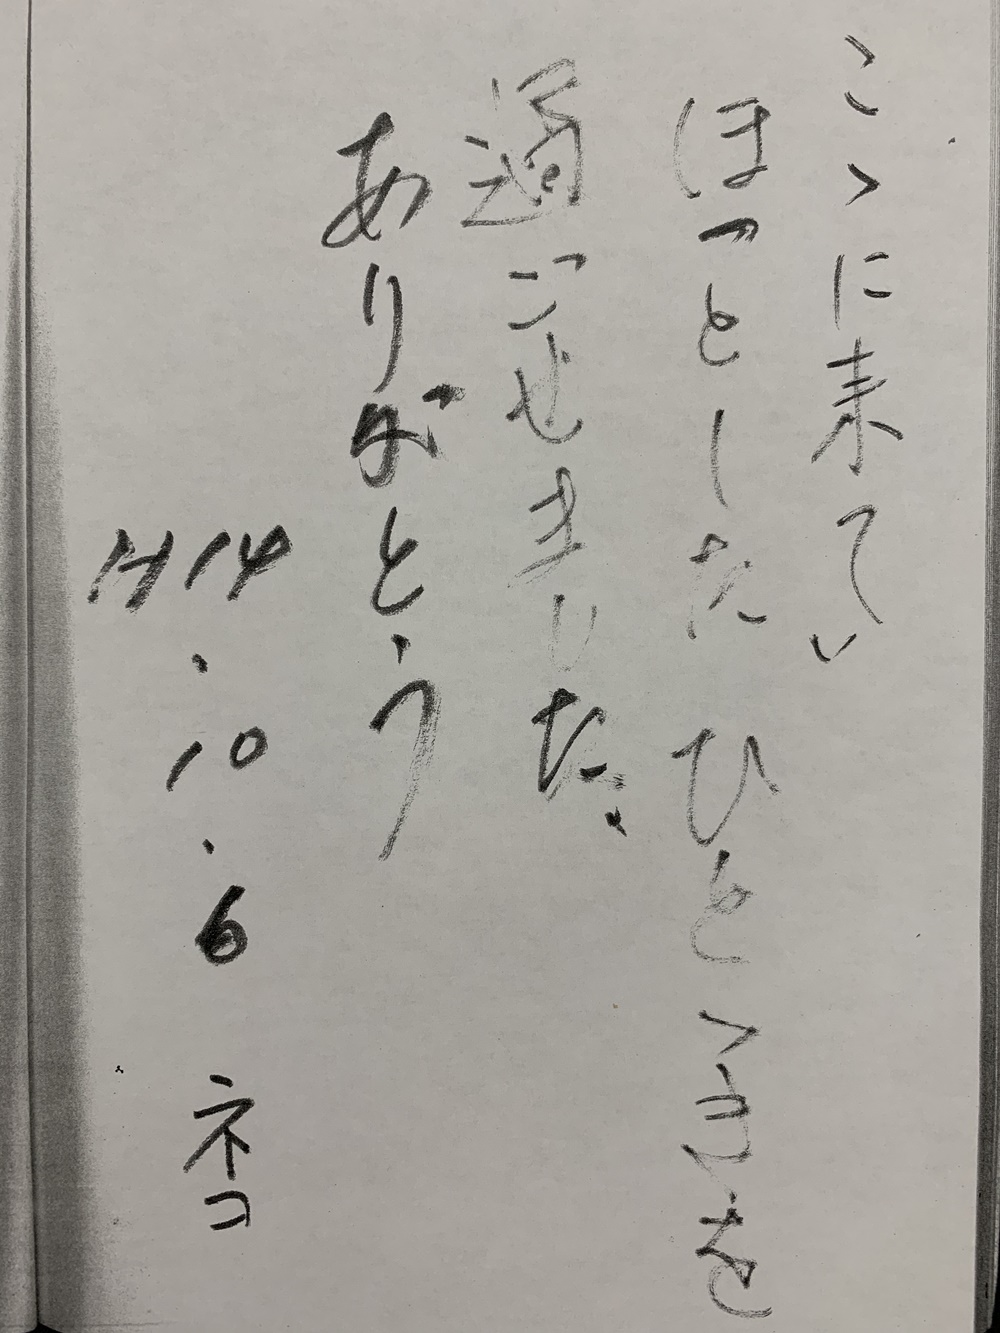 こゝに来てい
ほっとしたひとゝきを
過ごせました。
ありがとう
H14.10.6 ネコ